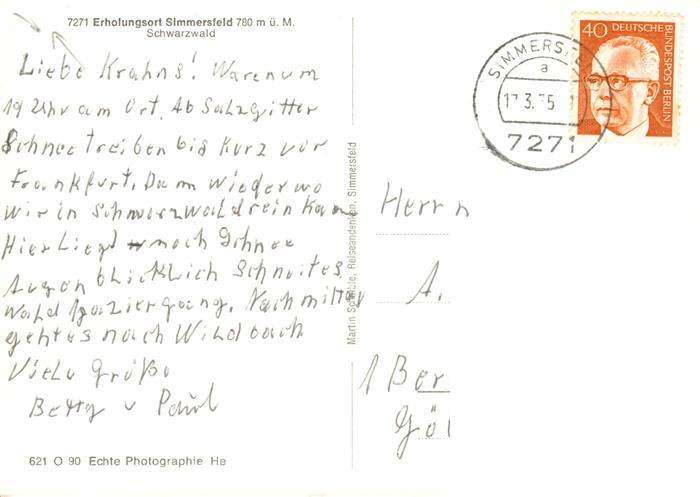 7271 Erholungsort Simmersfeld 780 m ü. M.
Schwarzwald
Liebe Krahns! Waren um
19 Uhr am Ort. Ab Salzgitter
Schneetreiben bis kurz vor
Frankfurt. Dann wieder wo
wir in Schwarzwald rein kam
Hier Liegt noch Schnee
Augenblicklich Schneites
Wald Spaziergang. Nachmittag
gehtes nach Wildbach
Viele Grüße
Betty u Paul
621 O 90 Echte Photographie He
Martin Reiseandenken, Simmersfeld
SIMMERSFE
a
3.75
7271
40 DEUTSCHE BUNDESPOST BERLIN
Herrn
A.
1 Ber
Göl